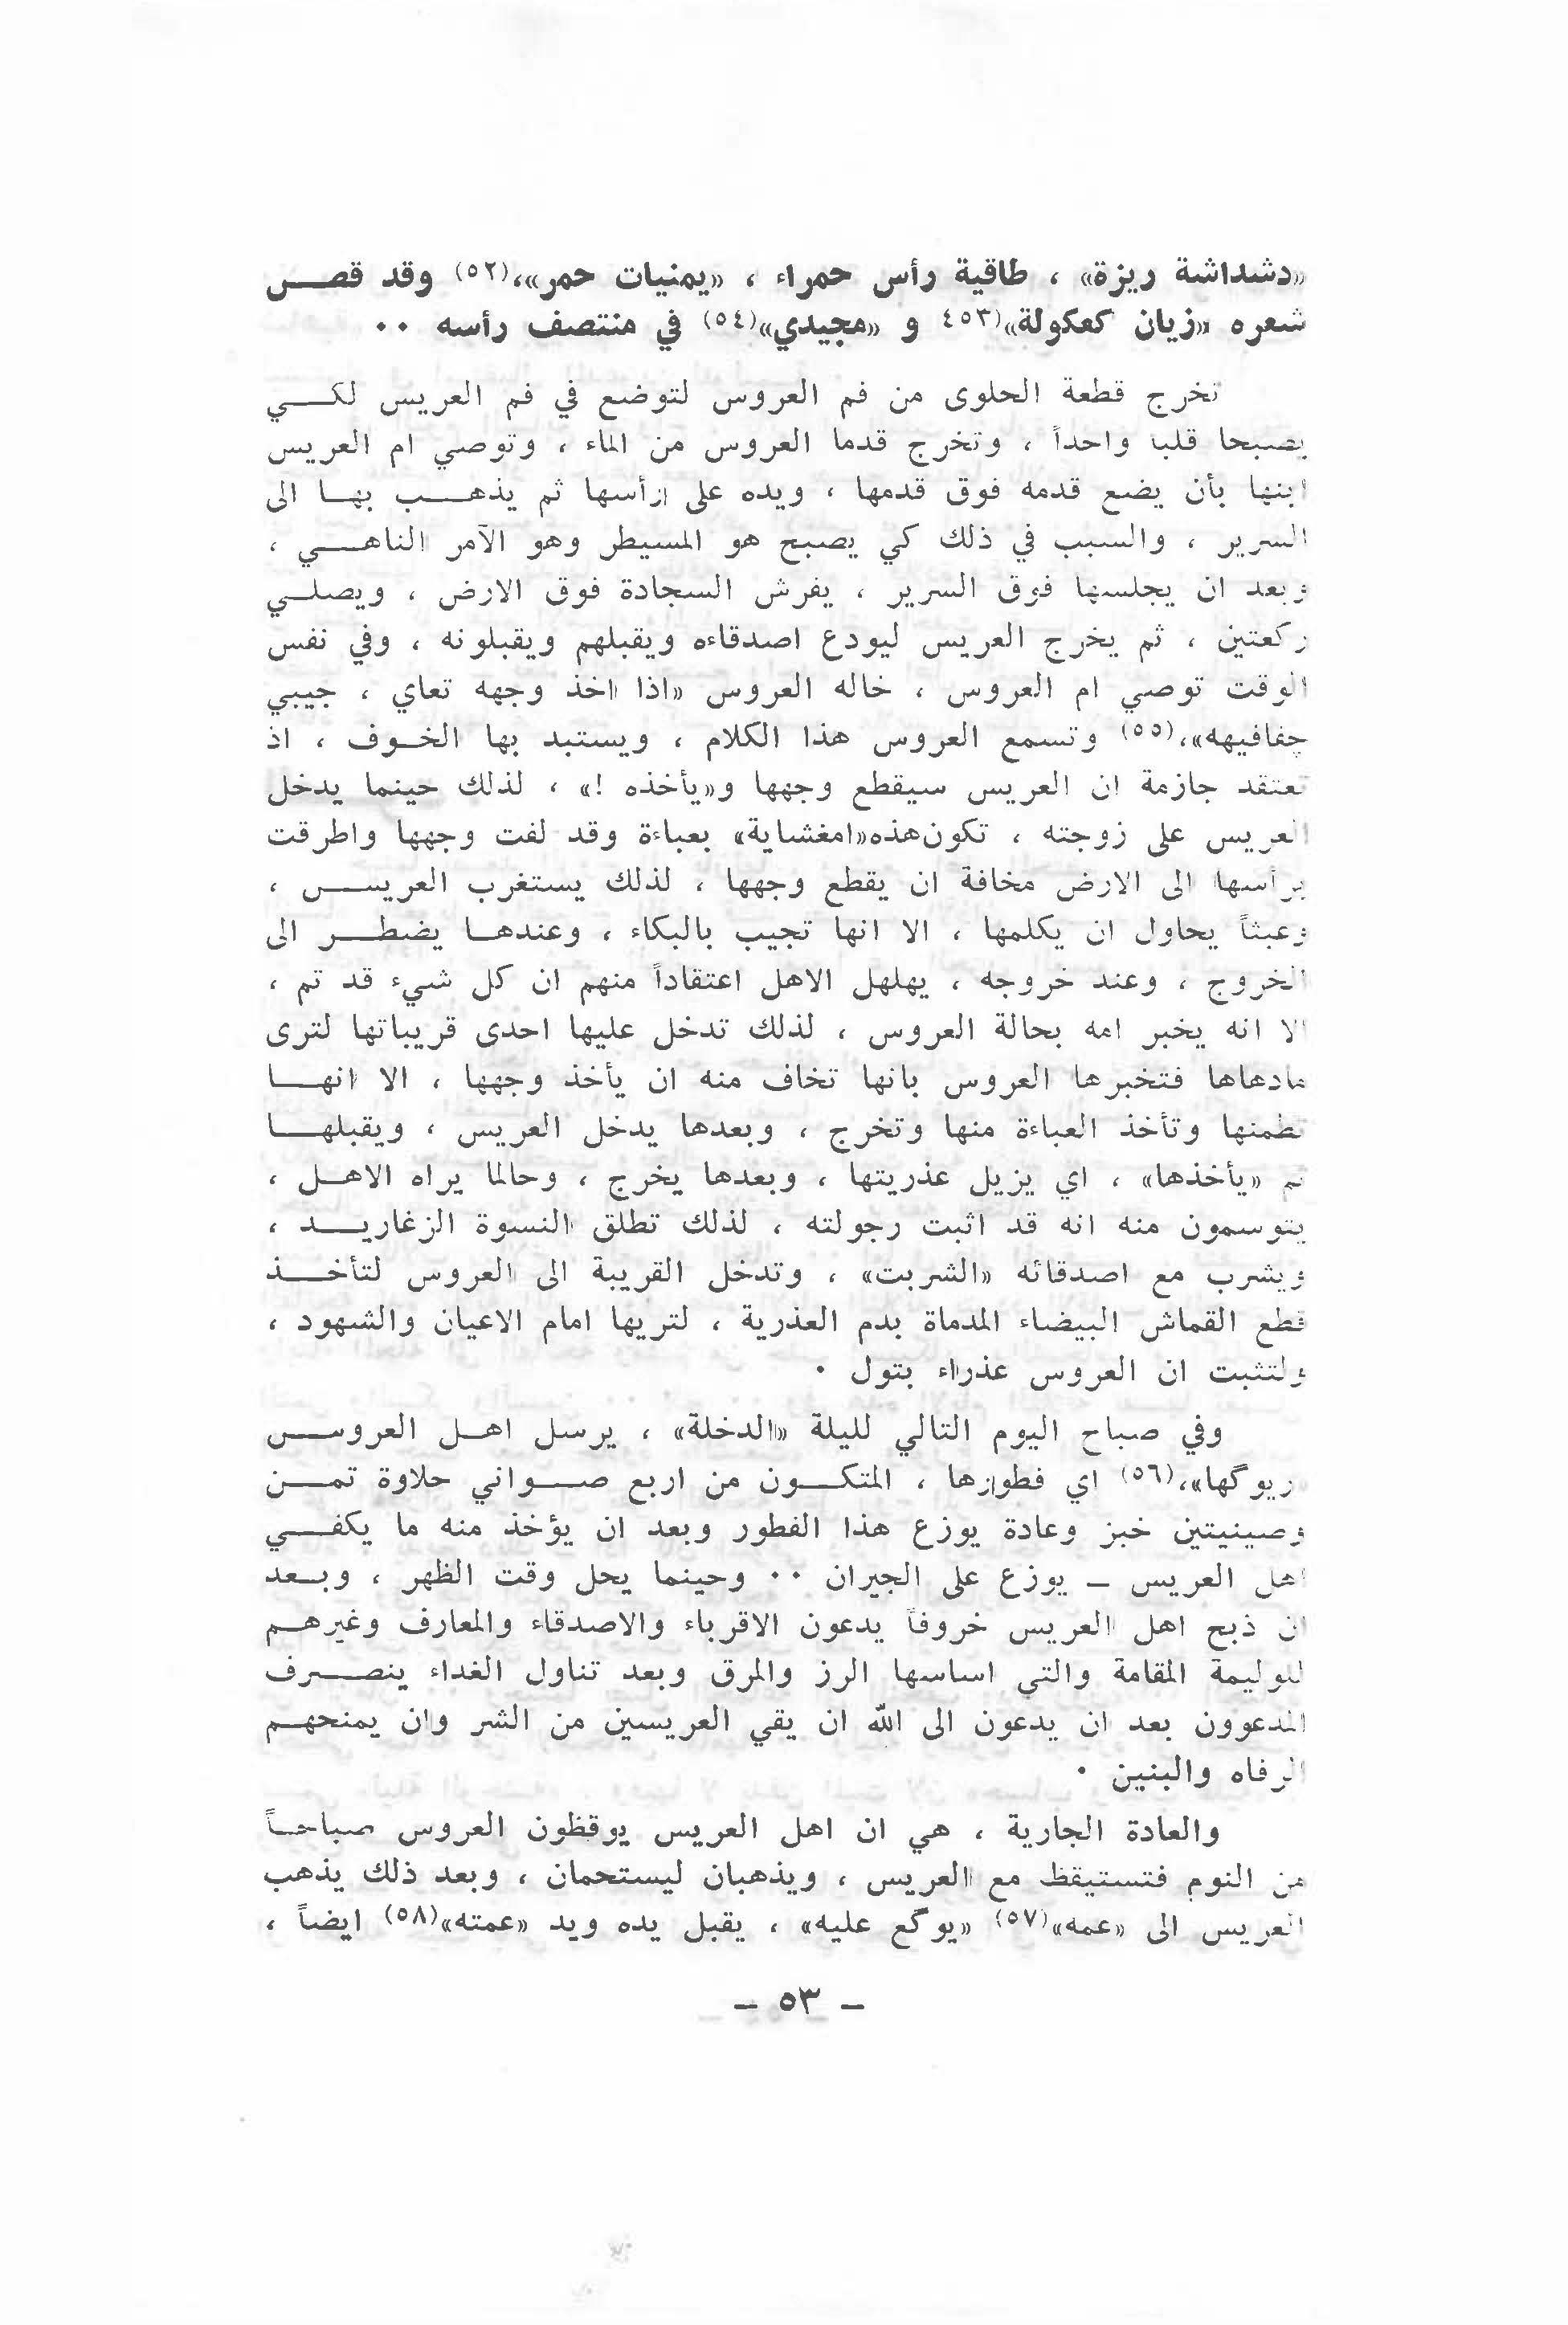 «دشداشة ريزة» ، طاقية رأس حمراء ، «يمنيات حمر»،(٥٢) وقد قص
شعره «زيان كعكولة»(٤٥٣ و «مجيدي»(٥٤) في منتصف رأسه ٠٠
تخرج قطعة الحلوى من فم العروس لتوضع في فم العريس لكي
يصبحا قلبا واحداً ، وتخرج قدما العروس من الماء ، وتوصي ام العريس
ابنها بأن يضع قدمه فوق قدمها ، ويده على رأسها ثم يذهب بها الى
السرير ، والسبب في ذلك كي يصبح هو المسيطر وهو الآمر الناهي ،
وبعد ان يجلسها فوق السرير ، يفرش السجادة فوق الارض ، ويصلي
ركعتين ، ثم يخرج العريس ليودع اصدقاءه ويقبلهم ويقبلونه ، وفي نفس
الوقت توصي ام العروس ، خاله العروس «اذا اخذ وجهه تعاي ، جيبي
چفافيهه»،(٥٥) وتسمع العروس هذا الكلام ، ويستبد بها الخوف ، اذ
تعتقد جازمة ان العريس سيقطع وجهها و«يأخذه !» ، لذلك حينما يدخل
العريس على زوجته ، تكون هذه «امغشاية» بعباءة وقد لفت وجهها واطرقت
برأسها الى الارض مخافة ان يقطع وجهها ، لذلك يستغرب العريس ،
وعبثاً يحاول ان يكلمها ، الا انها تجيب بالبكاء ، وعندها يضطر الى
الخروج ، وعند خروجه ، يهلهل الاهل اعتقاداً منهم ان كل شيء قد تم ،
الا انه يخبر امه بحالة العروس ، لذلك تدخل عليها احدى قريباتها لترى
مادهاها فتخبرها العروس بانها تخاف منه ان يأخذ وجهها ، الا انها
تطمنها وتأخذ العباءة منها وتخرج ، وبعدها يدخل العريس ، ويقبلها
ثم «يأخذها» ، اي يزيل عذريتها ، وبعدها يخرج ، وحالما يراه الاهل ،
يتوسمون منه انه قد اثبت رجولته ، لذلك تطلق النسوة الزغاريد ،
ويشرب مع اصدقائه «الشربت» ، وتدخل القريبة الى العروس لتأخذ
قطع القماش البيضاء المدماة بدم العذرية ، لتريها امام الاعيان والشهود ،
ولتثبت ان العروس عذراء بتول ٠
وفي صباح اليوم التالي لليلة «الدخلة» ، يرسل اهل العروس
«ريوگها»،(٥٦) اي فطورها ، المتكون من اربع صواني حلاوة تمن
وصينيتين خبز وعادة يوزع هذا الفطور وبعد ان يؤخذ منه ما يكفي
اهل العريس – يوزع على الجيران ٠٠ وحينما يحل وقت الظهر ، وبعد
ان ذبح اهل العريس خروفاً يدعون الاقرباء والاصدقاء والمعارف وغيرهم
للوليمة المقامة والتي اساسها الرز والمرق وبعد تناول الغداء ينصرف
المدعوون بعد ان يدعون الى الله ان يقي العريسين من الشر وان يمنحهم
الرفاه والبنين ٠
والعادة الجارية ، هي ان اهل العريس يوقظون العروس صباحاً
من النوم فتستيقظ مع العريس ، ويذهبان ليستحمان ، وبعد ذلك يذهب
العريس الى «عمه»(٥٧) «يوگع عليه» ، يقبل يده ويد «عمته»(٥٨) ايضاً ،
– ٥٣ –